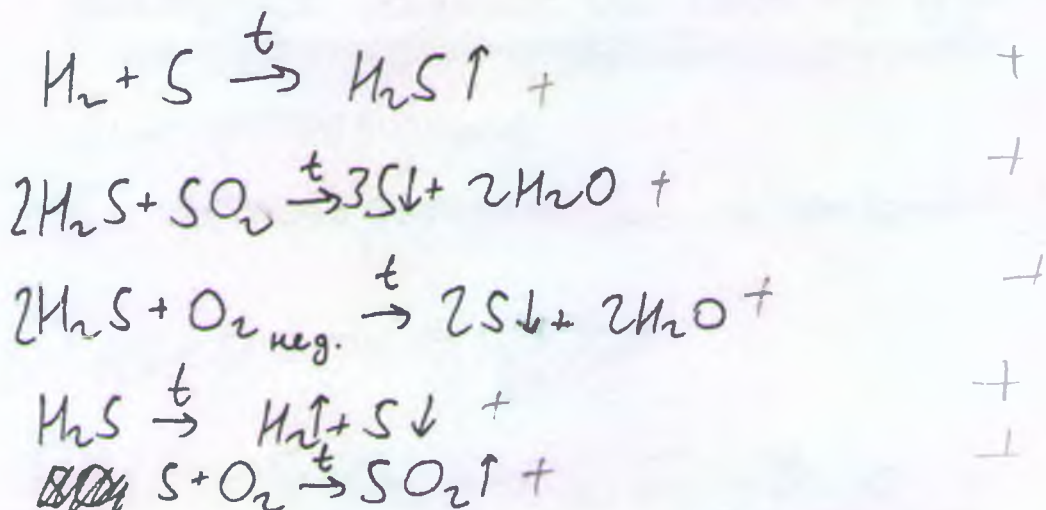 H₂ + S →ᵗ H₂S ↑ + +
2H₂S + SO₂ →ᵗ 3S↓ + 2H₂O + +
2H₂S + O₂ нед. →ᵗ 2S↓ + 2H₂O + +
H₂S →ᵗ H₂↑ + S ↓ + +
S + O₂ →ᵗ SO₂↑ + +